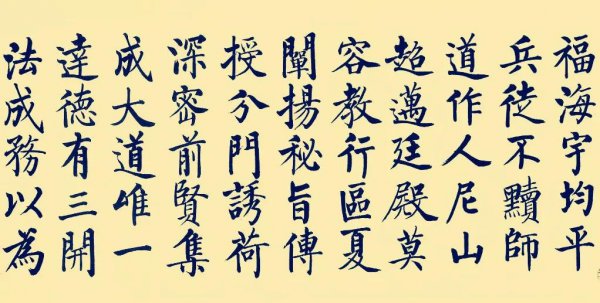 福海宇均平
兵徒不黷師
道作人尼山
超邁廷殿莫
容教行區夏
闡揚秘旨傳
授分門誘荷
深密前賢集
成大道唯一
達德有三開
法成務以為